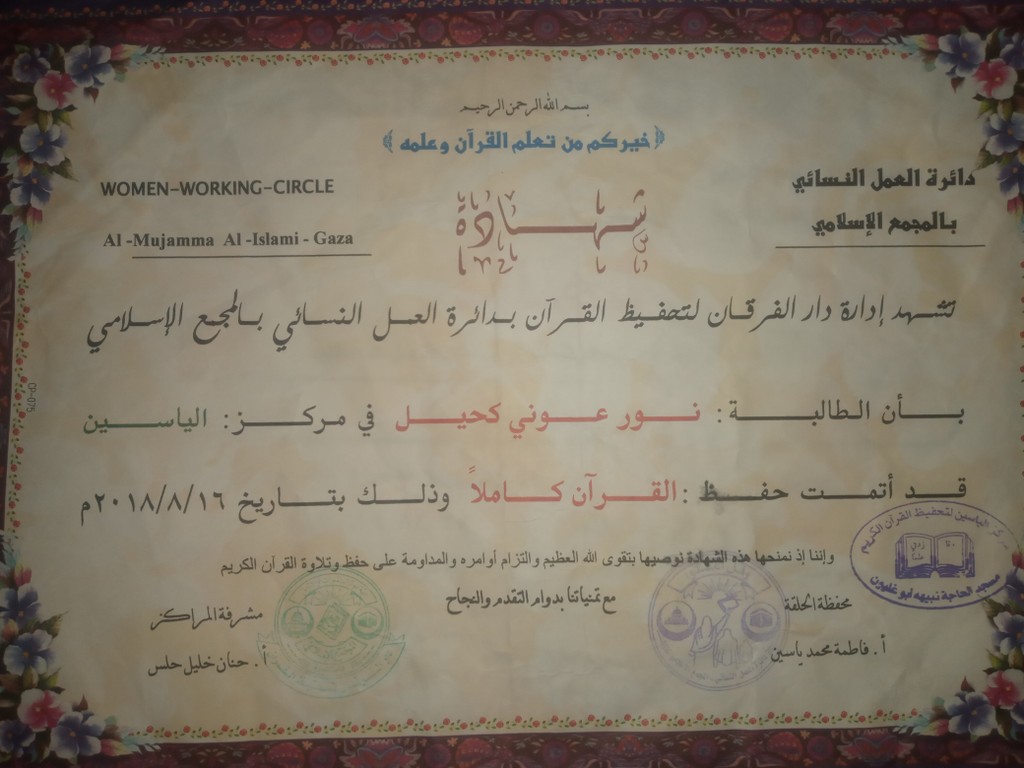 بسم الله الرحمن الرحيم
﴿خيركم من تعلم القرآن وعلمه﴾
دائرة العمل النسائي
بالمجمع الإسلامي
WOMEN-WORKING-CIRCLE
Al -Mujamma Al -Islami - Gaza
شهادة
تشهد إدارة دار الفرقان لتحفيظ القرآن بدائرة العمل النسائي بالمجمع الإسلامي
بأن الطالبة: نور عوني كحيل في مركز: الياسين
قد أتمت حفظ: القرآن كاملاً وذلك بتاريخ ٢٠١٨/٨/١٦م
وإننا إذ نمنحها هذه الشهادة نوصيها بتقوى الله العظيم والتزام أوامره والمداومة على حفظ وتلاوة القرآن الكريم
مع تمنياتنا بدوام التقدم والنجاح
محفظة الحلقة
أ. فاطمة محمد ياسين
مشرفة المراكز
أ. حنان خليل حلس
مركز الياسين لتحفيظ القرآن الكريم
مسجد الحاجة نبيهه أبو غليون
CP-075